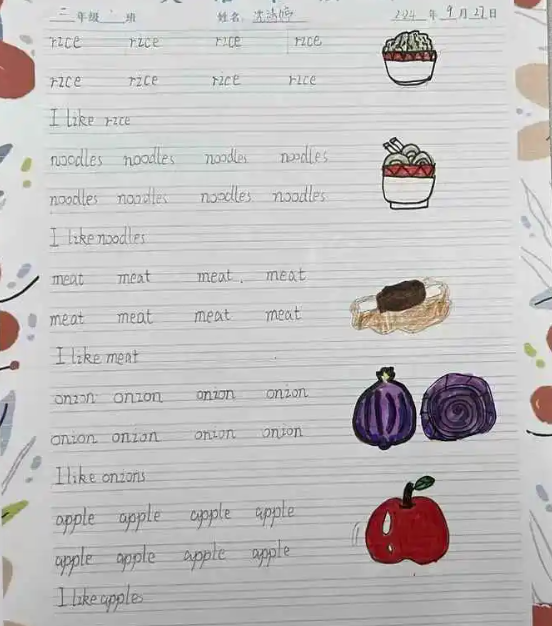 三年级 班 姓名: 2024年9月27日
rice rice rice rice
rice rice rice rice
I like rice
noodles noodles noodles noodles
noodles noodles noodles noodles
I like noodles
meat meat meat meat
meat meat meat meat
I like meat
onion onion onion onion
onion onion onion onion
I like onions
apple apple apple apple
apple apple apple apple
I like apples